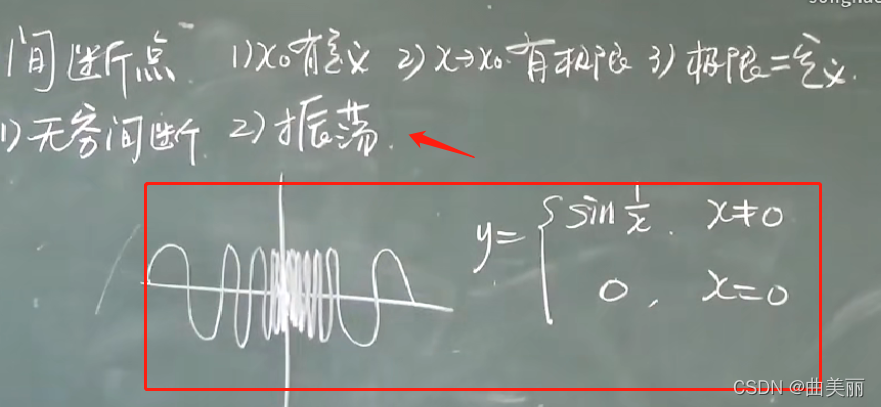 间断点 1) x₀有定义 2) x→x₀有极限 3) 极限=定义.
1) 无穷间断. 2) 振荡.
y= { sin 1/x, x≠0
0, x=0
CSDN @曲美丽